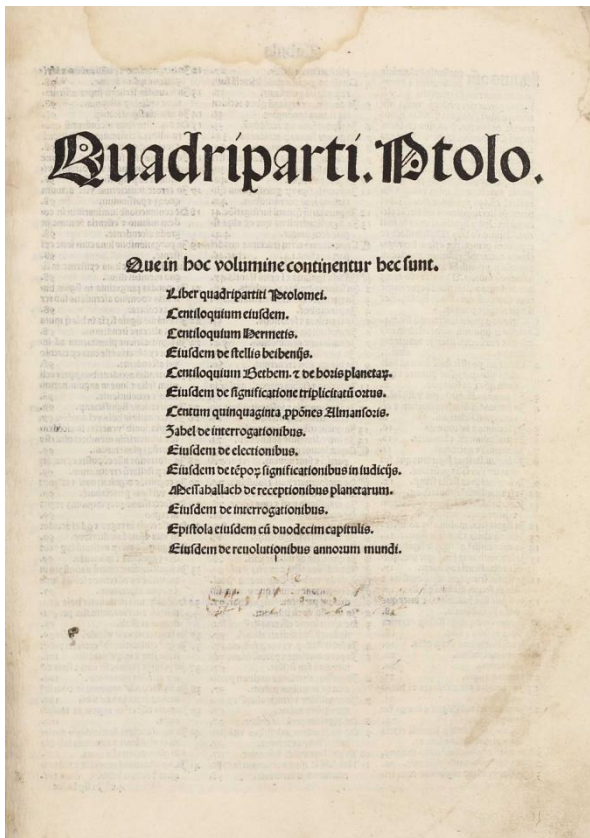 Quadriparti. Ptolo.
Que in hoc volumine continentur hec sunt.
Liber quadripartiti Ptolomei.
Centiloquium eiusdem.
Centiloquium Hermetis.
Eiusdem de stellis beibenijs.
Centiloquium Bethem. ⁊ de horis planetaꝝ.
Eiusdem de significatione triplicitatū ortus.
Centum quinquaginta ꝓpōnes Almansoris.
Zahel de interrogationibus.
Eiusdem de electionibus.
Eiusdem de tēpoꝝ significationibus in iudicijs.
Messahallach de receptionibus planetarum.
Eiusdem de interrogationibus.
Epistola eiusdem cū duodecim capitulis.
Eiusdem de reuolutionibus annorum mundi.